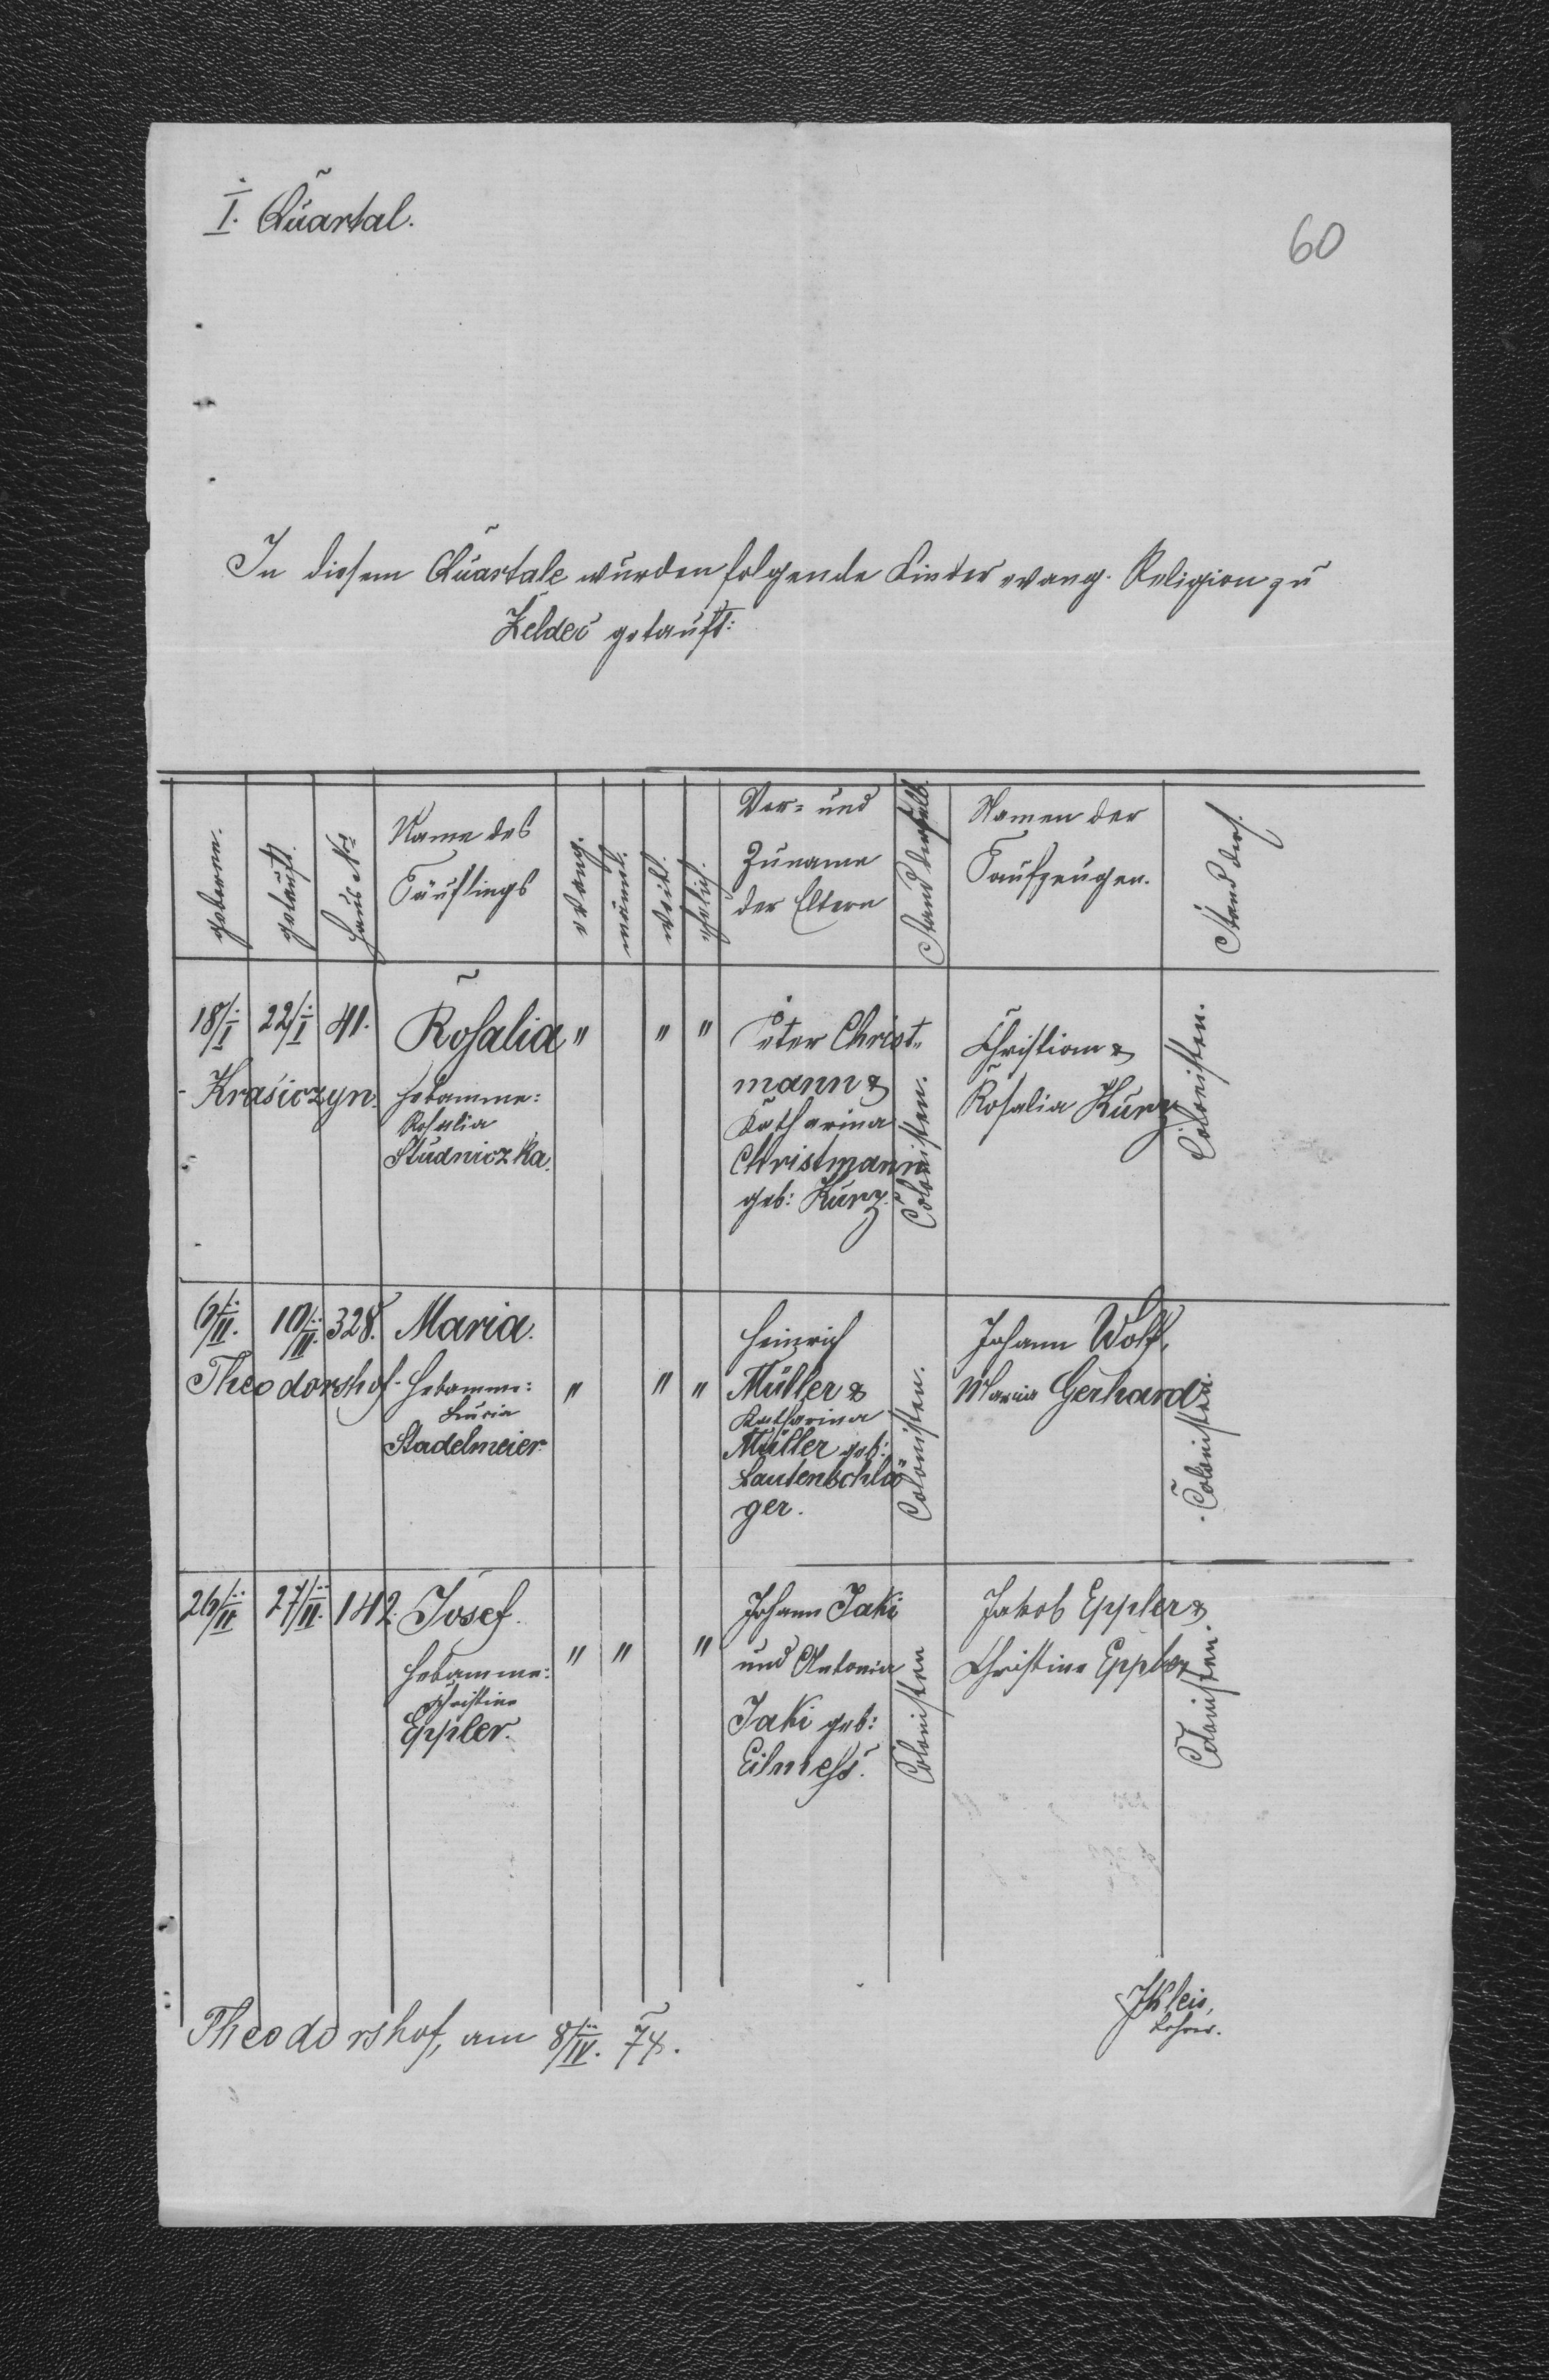 I. Quartal.
60
In diesem Quartale wurden folgende Kinder evang. Religion zu
Zeldec getauft:
geboren.
getauft.
Haus No
Name des
Täuflings
evang.
männl.
weibl.
ehelich.
Vor- und
Zuname
der Eltern
Stand derselb.
Namen der
Taufzeugen.
Stand ders.
18/I 22/I 41. Rosalia " " "
Krasiczyn.
Hebamme:
Rosalia
Studniczka.
Peter Christ-
mann &
Katharina
Christmann
geb: Kurz.
Colonisten.
Christian &
Rosalia Kurz
Colonisten.
6/II. 10/II. 328. Maria.
Theodorshof.
Hebamme:
Lucia
Stadelmeier.
" " "
Heinrich
Müller &
Katharina
Müller geb:
Lautenschlä
ger.
Colonisten.
Johann Wolf,
Maria Gerhardz
Colonisten.
26/II 27/II. 142. Josef.
Hebamme:
Christine
Eppler.
" " "
Johann Jaki
und Antonia
Jaki geb:
Eilmess.
Colonisten
Jakob Eppler &
Christine Eppler
Colonisten.
Theodorshof, am 8/IV. 74.
JKleis,
Lehrer.